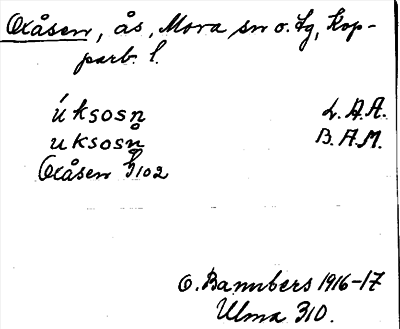 Oxåsen, ås, Mora sn o. tg, Kop-
parb. l.
úksosn̥ L.A.A.
uksosn̥ B.A.M.
Oxåsen G102
O. Bannbers 1916-17
Ulma 310.